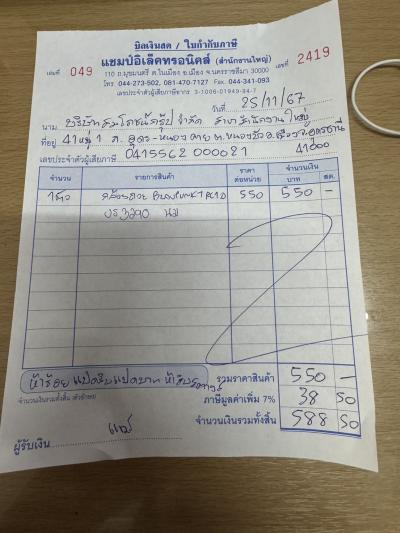 บิลเงินสด / ใบกำกับภาษี
แชมป์อิเล็คทรอนิคส์ (สำนักงานใหญ่)
เล่มที่ 049 110 ถ.มุขมนตรี ต.ในเมือง อ.เมือง จ.นครราชสีมา 30000 เลขที่ 2419
โทร 044-273-502, 081-470-7127 Fax. 044-341-093
เลขประจำตัวผู้เสียภาษีอากร 3-1006-01949-84-7
วันที่ 25/11/67
นาม บริษัท จำกัด สาขา สำนักงานใหญ่
ที่อยู่ 41 หมู่ 1 ถ. อุดร-หนองคาย ต. หมากแข้ง อ.เมือง จ.อุดรธานี
เลขประจำตัวผู้เสียภาษี 0415562000021 41000
จำนวน รายการสินค้า ราคาต่อหน่วย จำนวนเงิน
บาท สต.
1 550 550 -
ห้าร้อยแปดสิบแปดบาทห้าสิบสตางค์ รวมราคาสินค้า 550 -
จำนวนเงินรวมทั้งสิ้น (ตัวอักษร) ภาษีมูลค่าเพิ่ม 7% 38 50
จำนวนเงินรวมทั้งสิ้น 588 50
ผู้รับเงิน